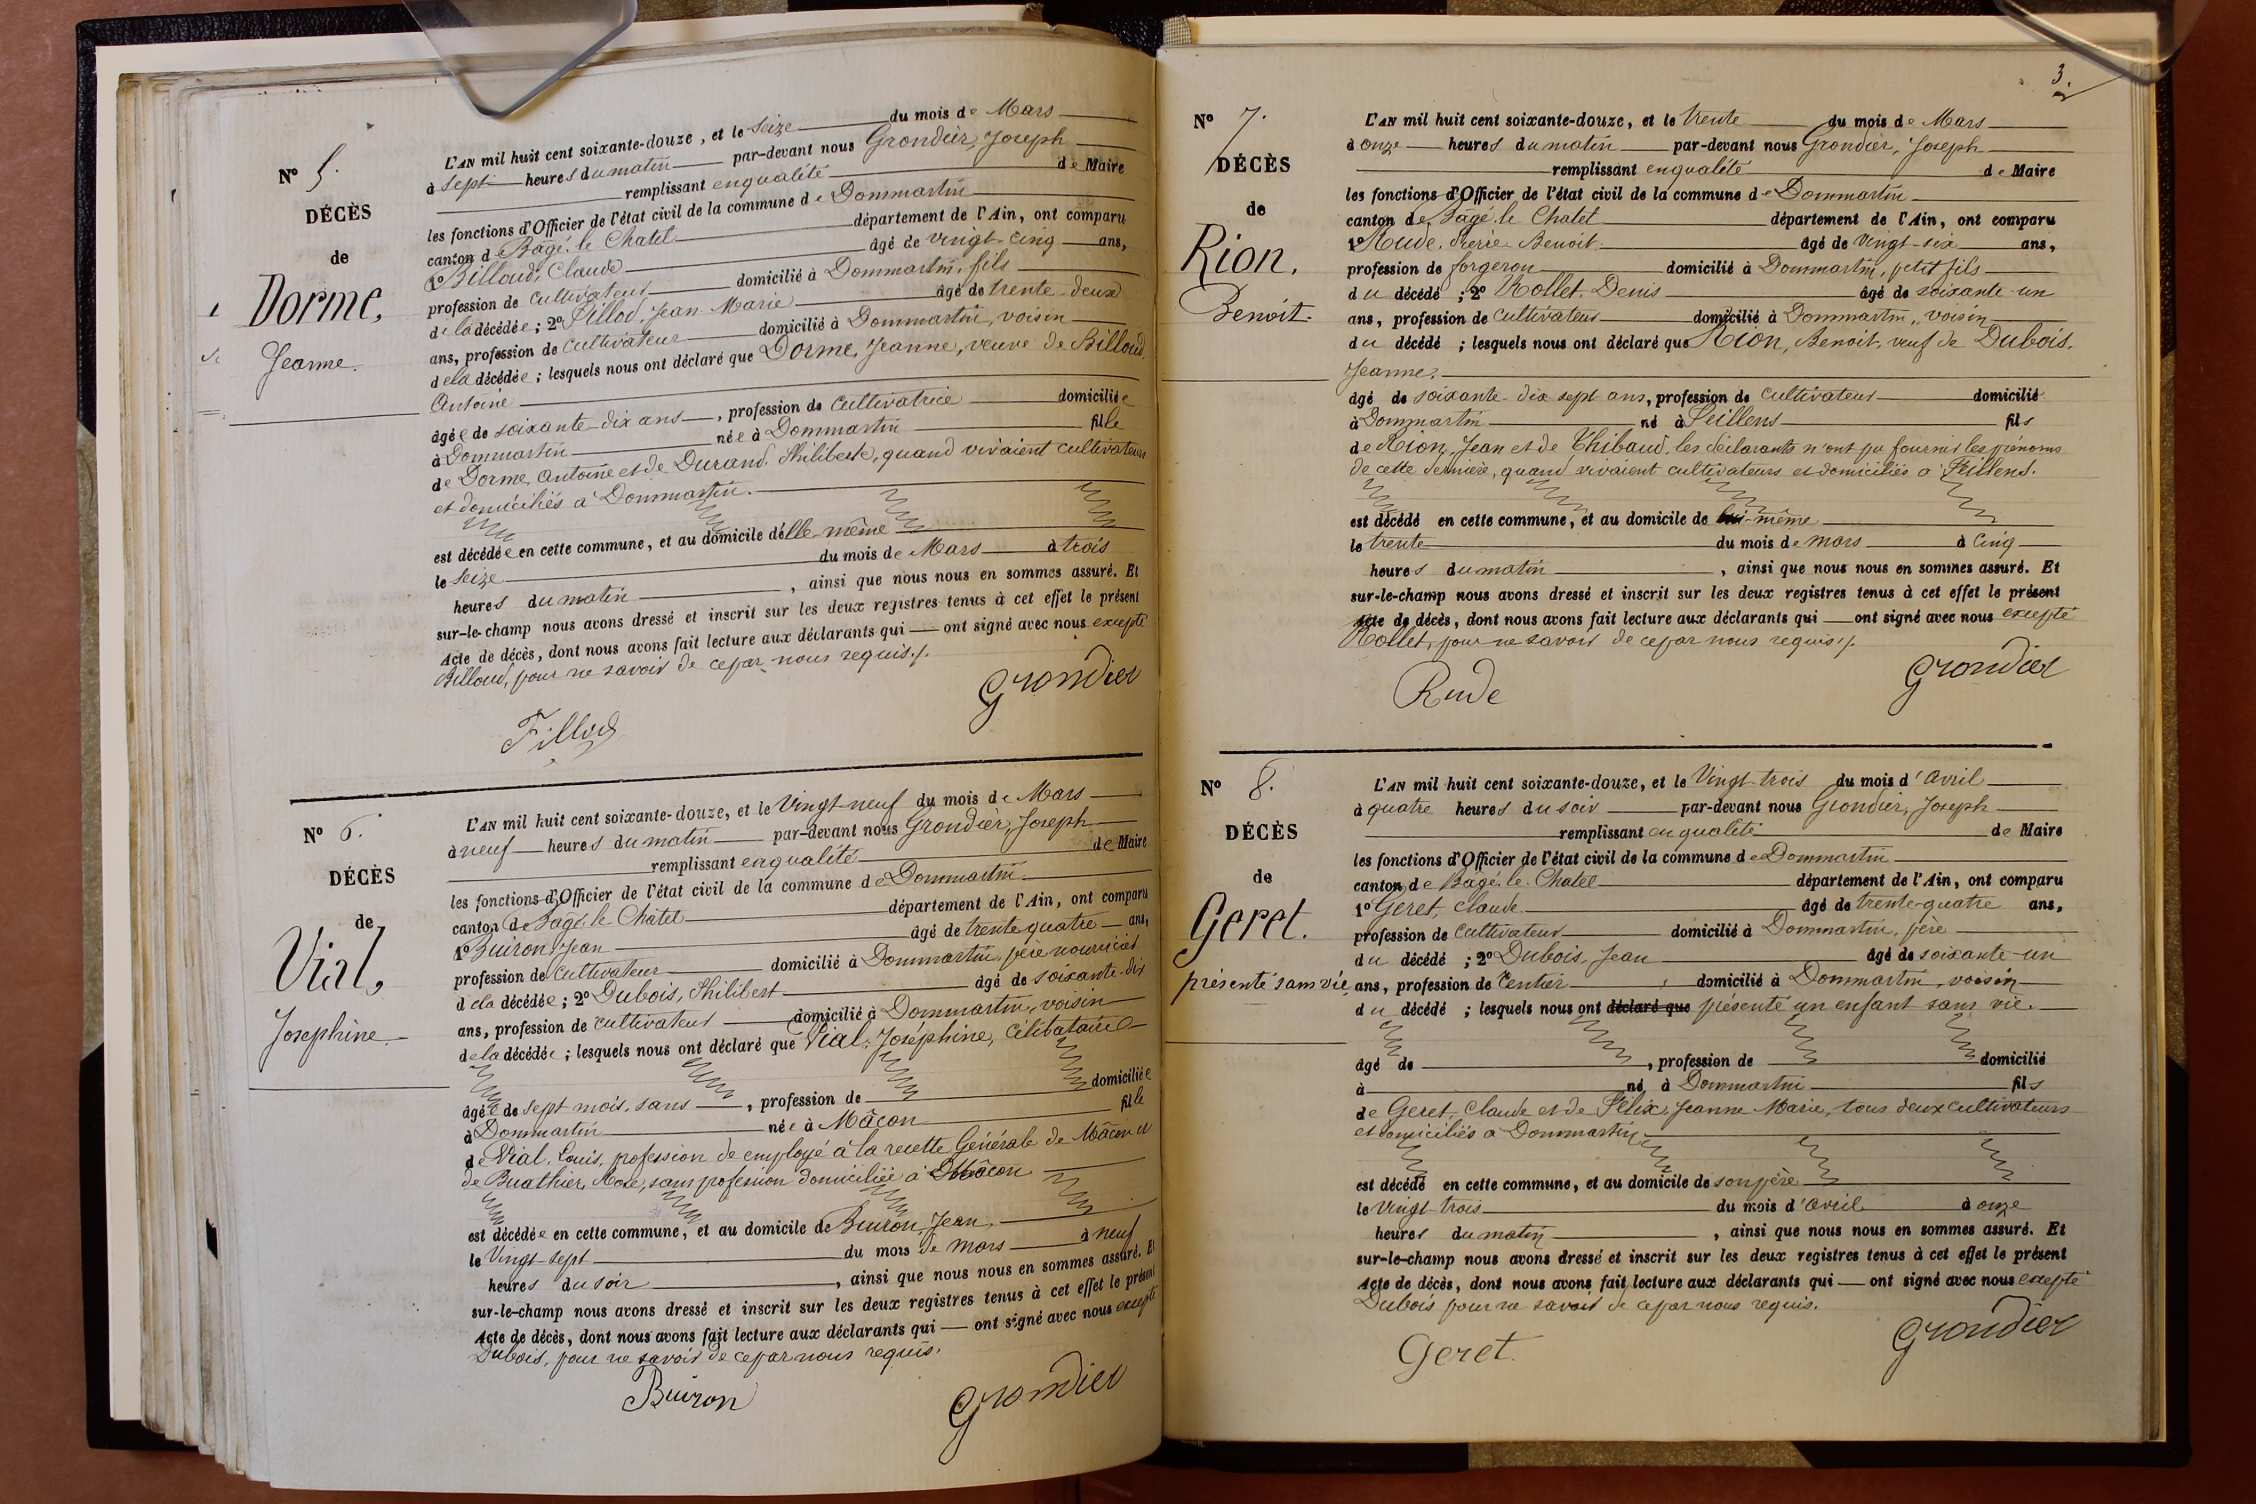 N° 5.
DÉCÈS
de
Dorme,
Jeanne.
L'AN mil huit cent soixante-douze, et le seize du mois de Mars
à sept heures du matin par-devant nous Grondier, Joseph
remplissant en qualité de Maire
les fonctions d'Officier de l'état civil de la commune de Dommartin
canton de Bagé-le-Chatel département de l'Ain, ont comparu
1° Billoud, Claude âgé de vingt-cinq ans,
profession de cultivateur domicilié à Dommartin, fils
de la décédée; 2° Fillod, Jean-Marie âgé de trente-deux
ans, profession de cultivateur domicilié à Dommartin, voisin
de la décédée; lesquels nous ont déclaré que Dorme, Jeanne, veuve de Billoud,
Antoine
âgée de soixante-dix ans, profession de cultivatrice domiciliée
à Dommartin née à Dommartin fille
de Dorme, Antoine et de Durand, Philiberte, quand vivaient cultivateurs
et domiciliés à Dommartin.
est décédée en cette commune, et au domicile d'elle-même
le seize du mois de Mars à trois
heures du matin, ainsi que nous nous en sommes assuré. Et
sur-le-champ nous avons dressé et inscrit sur les deux registres tenus à cet effet le présent
Acte de décès, dont nous avons fait lecture aux déclarants qui ont signé avec nous excepté
Billoud, pour ne savoir de ce par nous requis./.
Grondier
Fillod
N° 6.
DÉCÈS
de
Vial,
Josephine.
L'AN mil huit cent soixante-douze, et le Vingt-neuf du mois de Mars
à neuf heures du matin par-devant nous Grondier, Joseph
remplissant en qualité de Maire
les fonctions d'Officier de l'état civil de la commune de Dommartin
canton de Bagé-le-Châtel département de l'Ain, ont comparu
1° Buiron, Jean âgé de trente-quatre ans,
profession de cultivateur domicilié à Dommartin, père nourricier
de la décédée; 2° Dubois, Philibert âgé de soixante-dix
ans, profession de cultivateur domicilié à Dommartin, voisin
de la décédée; lesquels nous ont déclaré que Vial, Joséphine, célibataire
âgée de sept mois, sans, profession de domiciliée
à Dommartin née à Mâcon fille
de Vial, Louis, profession de employé à la recette Générale de Mâcon et
de Buathier, Rose, sans profession domiciliée à Mâcon
est décédée en cette commune, et au domicile de Buiron, Jean,
le Vingt-sept du mois de mars à neuf
heures du soir, ainsi que nous nous en sommes assuré. Et
sur-le-champ nous avons dressé et inscrit sur les deux registres tenus à cet effet le présent
Acte de décès, dont nous avons fait lecture aux déclarants qui ont signé avec nous excepté
Dubois, pour ne savoir de ce par nous requis.
Buiron Grondier
3.
N° 7.
DÉCÈS
de
Rion,
Benoit.
L'AN mil huit cent soixante-douze, et le trente du mois de Mars
à onze heures du matin par-devant nous Grondier, Joseph
remplissant en qualité de Maire
les fonctions d'Officier de l'état civil de la commune de Dommartin
canton de Bagé-le-Chatel département de l'Ain, ont comparu
1° Rude, Pierre Benoit âgé de vingt-six ans,
profession de forgeron domicilié à Dommartin, petit fils
du décédé; 2° Rollet, Denis âgé de soixante-un
ans, profession de cultivateur domicilié à Dommartin, voisin
du décédé; lesquels nous ont déclaré que Rion, Benoit, veuf de Dubois,
Jeanne,
âgé de soixante-dix-sept ans, profession de cultivateur domicilié
à Dommartin né à Feillens fils
de Rion, Jean et de Thibaud, les déclarants n'ont pu fournir les prénoms
de cette dernière, quand vivaient cultivateurs et domiciliés à Feillens.
est décédé en cette commune, et au domicile de lui-même
le trente du mois de mars à cinq
heures du matin, ainsi que nous nous en sommes assuré. Et
sur-le-champ nous avons dressé et inscrit sur les deux registres tenus à cet effet le présent
Acte de décès, dont nous avons fait lecture aux déclarants qui ont signé avec nous excepté
Rollet, pour ne savoir de ce par nous requis./.
Rude Grondier
N° 8.
DÉCÈS
de
Geret.
présenté sans vie
L'AN mil huit cent soixante-douze, et le Vingt-trois du mois d'avril
à quatre heures du soir par-devant nous Grondier, Joseph
remplissant en qualité de Maire
les fonctions d'Officier de l'état civil de la commune de Dommartin
canton de Bagé-le-Chatel département de l'Ain, ont comparu
1° Geret, Claude âgé de trente-quatre ans,
profession de cultivateur domicilié à Dommartin, père
du décédé; 2° Dubois, Jean âgé de soixante-un
ans, profession de rentier, domicilié à Dommartin, voisin
du décédé; lesquels nous ont déclaré que présenté un enfant sans vie.
âgé de, profession de domicilié
à né à Dommartin fils
de Geret, Claude et de Félix, Jeanne Marie, tous deux cultivateurs
et domiciliés à Dommartin
est décédé en cette commune, et au domicile de son père
le vingt-trois du mois d'avril à onze
heures du matin, ainsi que nous nous en sommes assuré. Et
sur-le-champ nous avons dressé et inscrit sur les deux registres tenus à cet effet le présent
Acte de décès, dont nous avons fait lecture aux déclarants qui ont signé avec nous excepté
Dubois pour ne savoir de ce par nous requis.
Geret Grondier